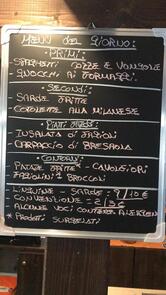 MENU DEL GIORNO:
PRIMI:
SPAGHETTI COZZE E VONGOLE
GNOCCHI AI FORMAGGI.
SECONDI:
SARDE FRITTE
COTOLETTE ALLA MILANESE
PIATTI FREDDI:
INSALATA DI FAGIOLI
CARPACCIO DI BRESAOLA
CONTORNI:
PATATE FRITTE - CAVOLFIORI
FAGIOLINI BROCCOLI
SARDE: 9/10€
2/3€
ALCUNE VOCI
* PRODOTTI SURGELATI